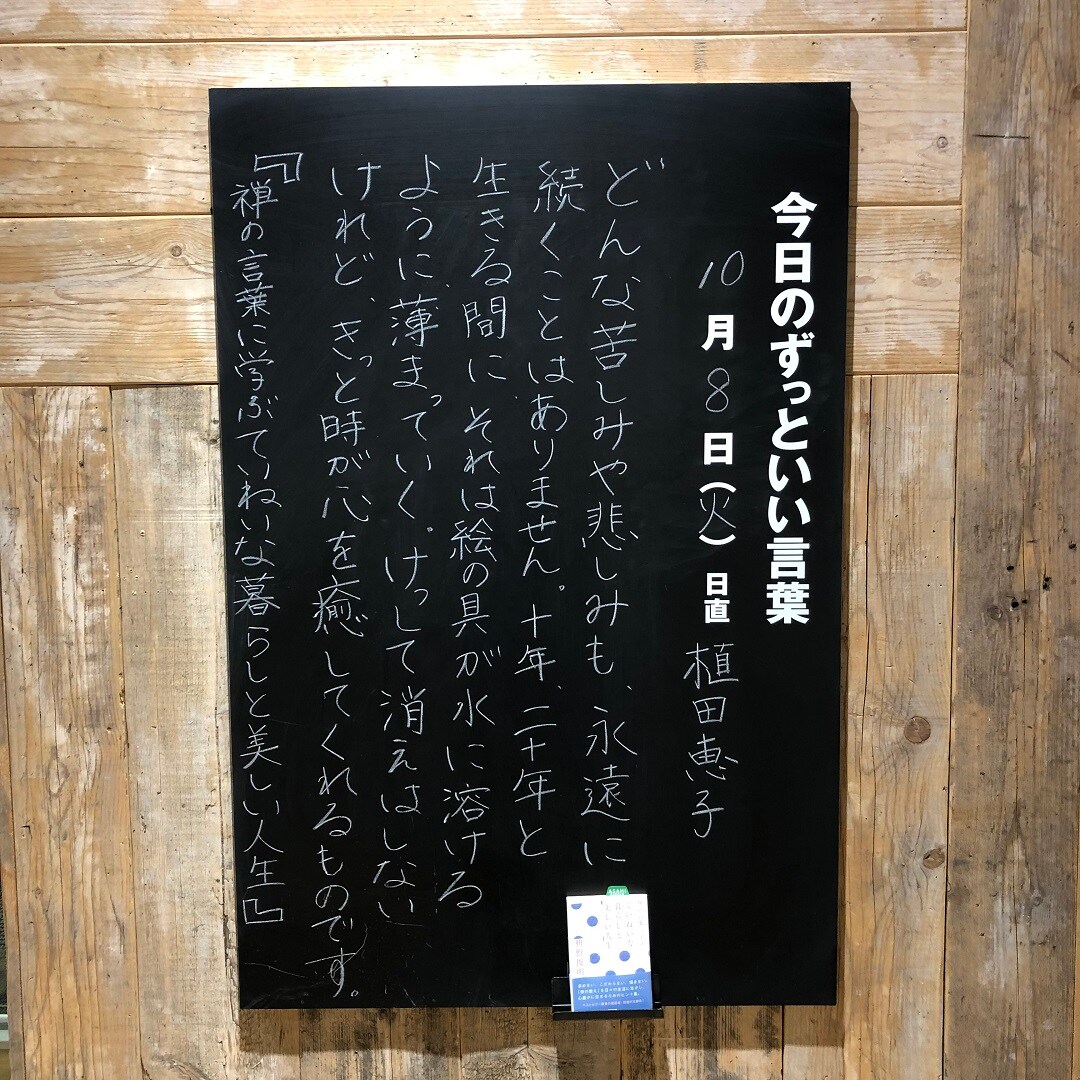 今日のずっといい言葉
10月8日(火)日直 植田恵子
どんな苦しみや悲しみも、永遠に
続くことはありません。十年、二十年と
生きる間に それは絵の具が水に溶ける
ように薄まっていく。けっして消えはしない
けれど、きっと時が心を癒してくれるものです。
『禅の言葉に学ぶていねいな暮らしと美しい人生』
ていねいな
暮らしと
美しい人生
枡野俊明